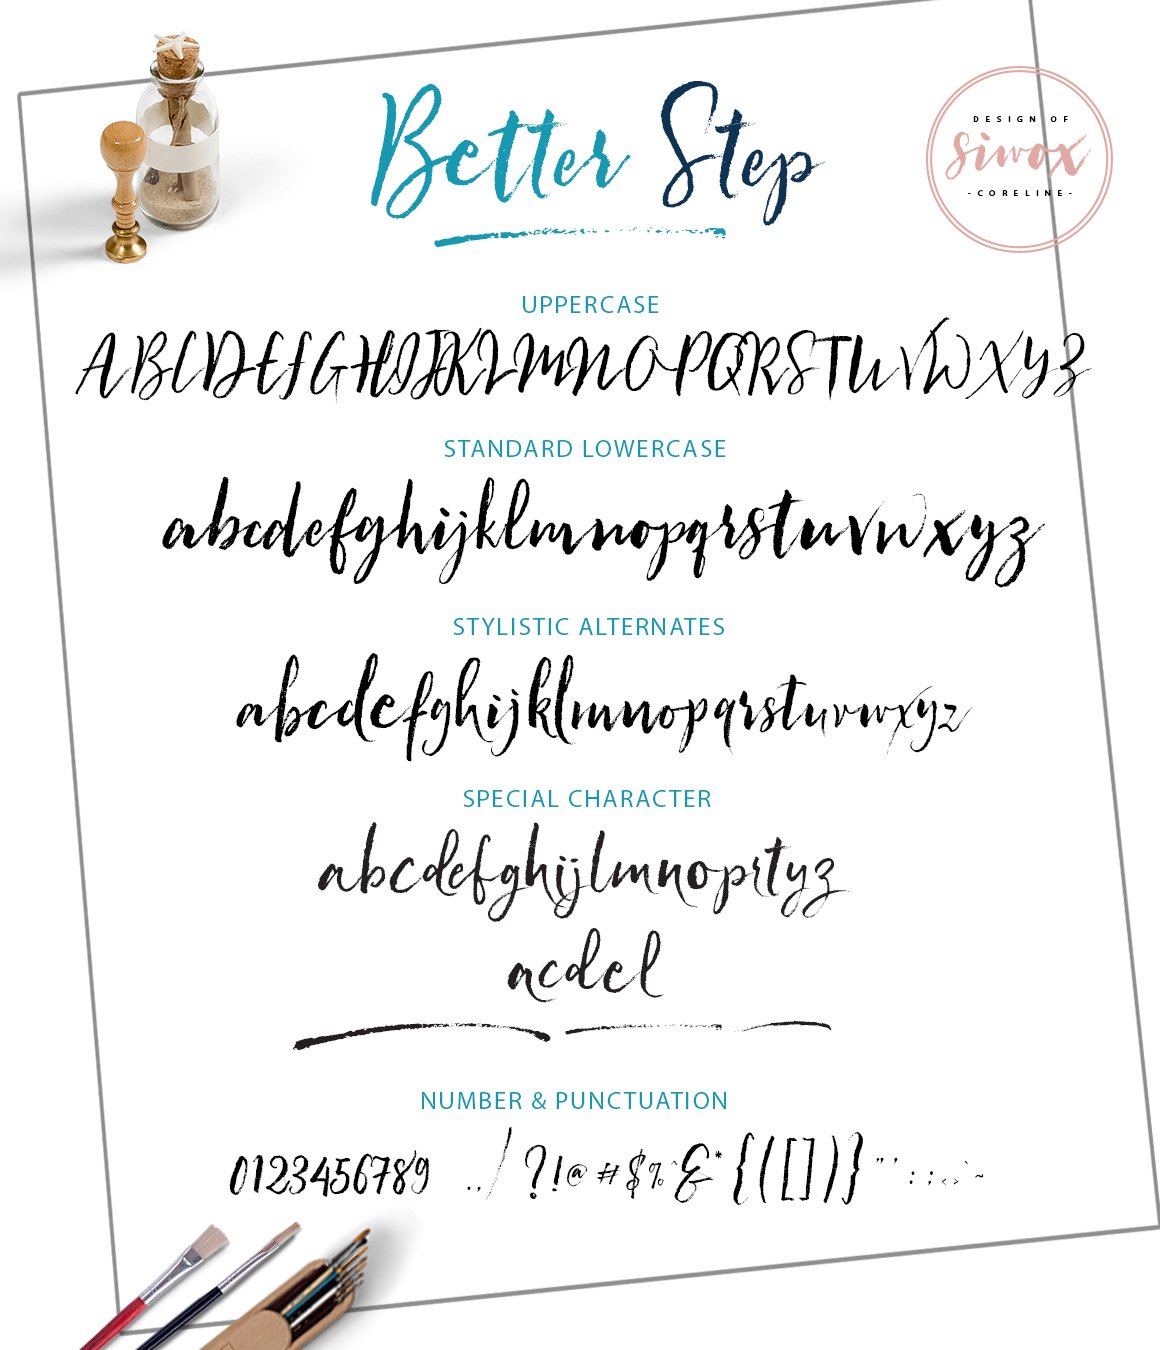 Better Step
DESIGN OF
siwox
-CORELINE-
UPPERCASE
ABCDEFGHIJKLMNOPQRSTUVWXYZ
STANDARD LOWERCASE
abcdefghijklmnopqrstuvwxyz
STYLISTIC ALTERNATES
abcdefghijklmnopqrstuvwxyz
SPECIAL CHARACTER
abcdefghijlmnoprtyz
acdel
NUMBER & PUNCTUATION
0123456789 .,/ ?!@#$%^&*{([])}"':;<>`~